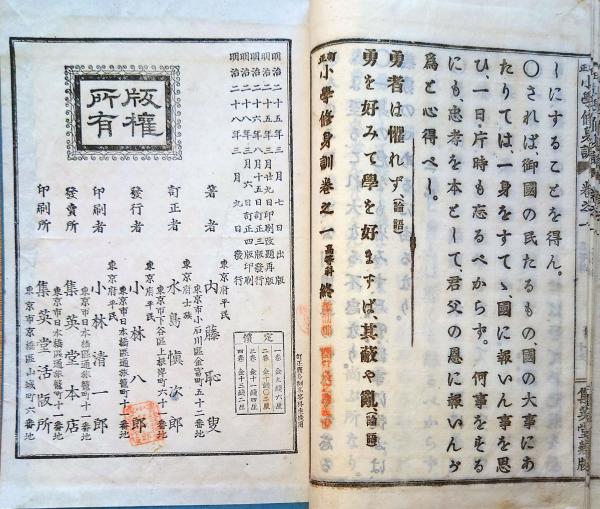 ーにすることを得ん。
〇されば、御國の民たるもの、國の大事にあ
たりては、一身をすてゝ、國に報いん事を思
ひ、一日片時も忘るべからず。何事をせる
にも、忠孝を本として君父の恩に報いんが
爲と心得べし。
勇者は懼れず(論語)
勇を好みて學を好まずば其敝や亂(論語)
訂正小學修身訓卷之一 高等科 終
明治二十五年三月 七日出版
明治二十八年三月 六日訂正四版印刷
明治二十八年三月 九日發行
版權所有
著者 東京府平民 內藤恥叟
東京市小石川區金富町五十二番地
訂正者 東京府士族 水島愼次郎
東京市下谷區上根岸町六十番地
發行者 東京府平民 小林八郎
東京市日本橋區通旅籠町十一番地
印刷者 小林清一郎
發賣所 集英堂本店
東京市日本橋區通旅籠町十一番地
印刷所 集英堂活版所
東京市京橋區山城町六番地
定價
一卷 金九錢六厘
四卷 金十二錢二厘
集英堂藏版